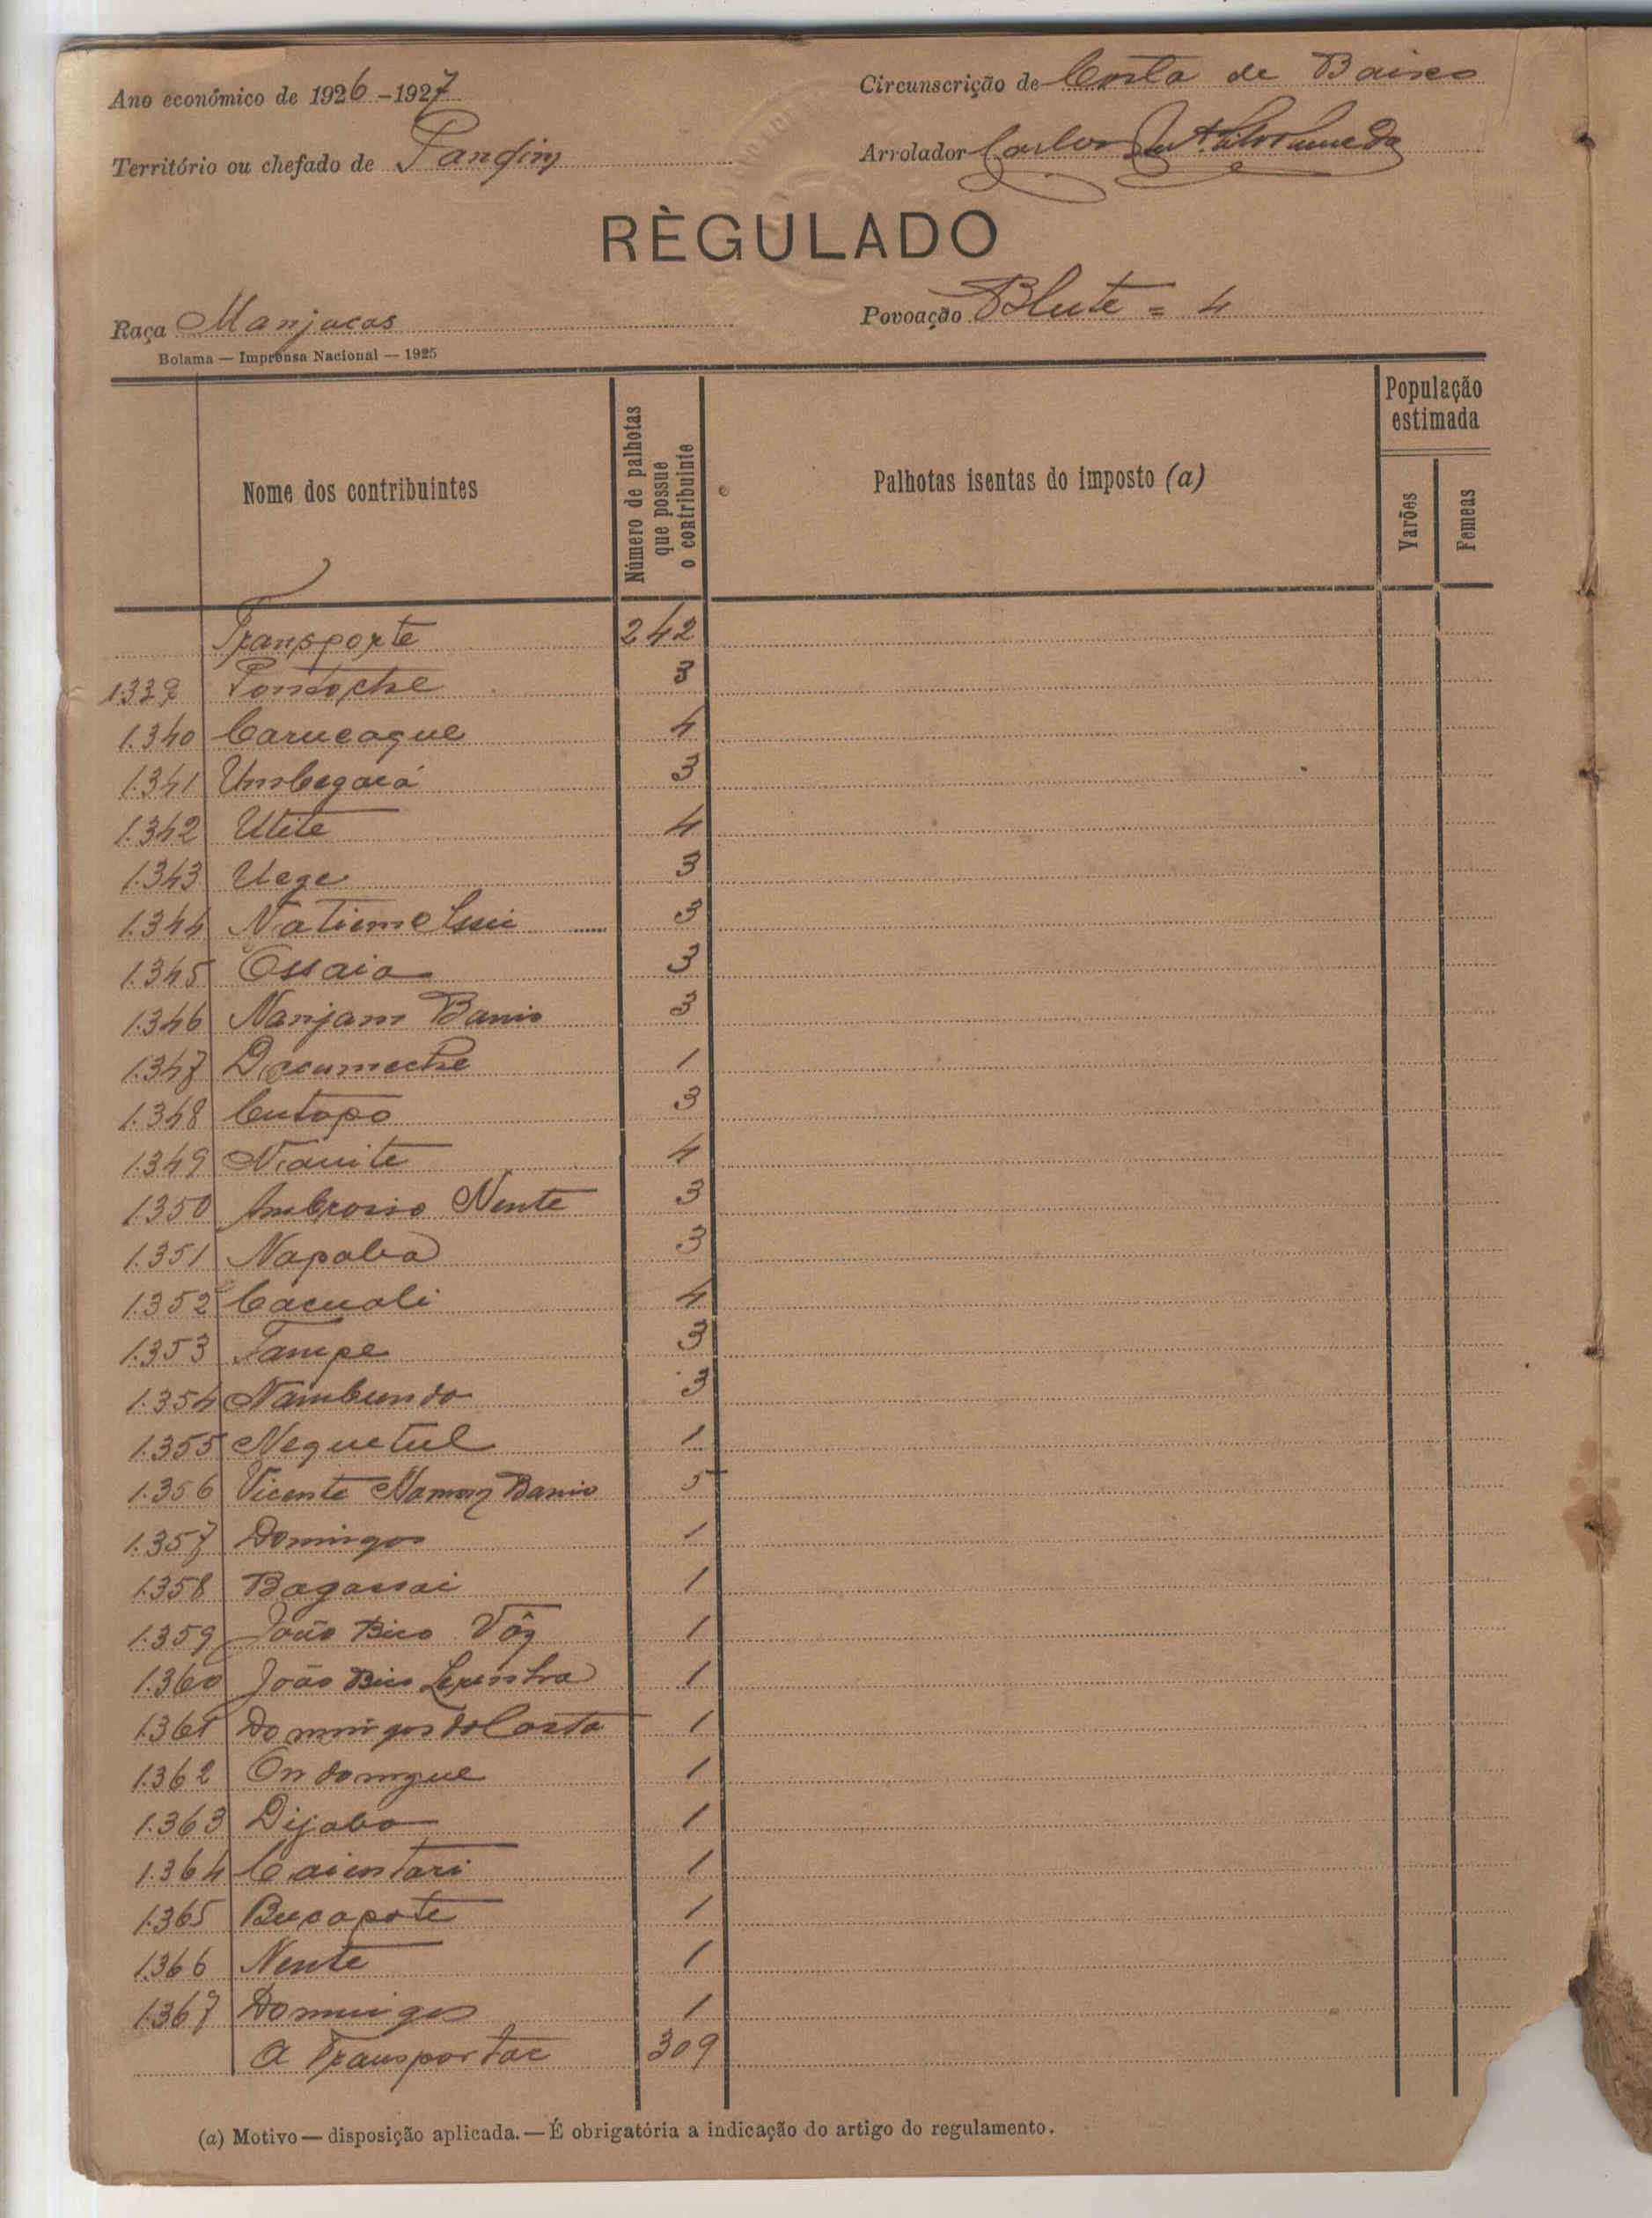 Ano económico de 1926-1927
Circunscrição de Costa de Baixo
Território ou chefado de Pandim
Arrolador Carlos
RÈGULADO
Raça Manjacos
Povoação Blute = 4
Bolama — Imprensa Nacional — 1925
Nome dos contribuintes
Número de palhotas que possue o contribuinte
Palhotas isentas do imposto (a)
População estimada
Varões
Femeas
Transporte 242
1.339 Pontoche 3
1.340 Carucaque 4
1.341 Umbegará 3
1.342 Utite 4
1.343 Uege 3
1.344 3
1.345 Ossaia 3
1.346 Nanjam Banio 3
1.347 Documeche 1
1.348 Cutopo 3
1.349 Niauite 4
1.350 Ambrosio Nente 3
1.351 Napaba 3
1.352 Cacuali 4
1.353 Tampe 3
1.354 Nambundo 3
1.355 Nequetul 1
1.356 Vicente Banio 5
1.357 Domingos 1
1.358 Bagassai 1
1.359 João Bico Vôz 1
1.360 João Bico 1
1.361 Domingos da Costa 1
1.362 Ondongue 1
1.363 Dijabo 1
1.364 Caientari 1
1.365 Bucapote 1
1.366 Nente 1
1.367 Domingos 1
A Transportar 309
(a) Motivo — disposição aplicada. — É obrigatória a indicação do artigo do regulamento.